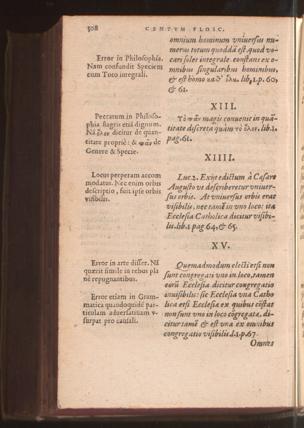 508
CENTVM FLOSC.
Error in Philosophia.
Nam confundit Speciem
cum Toto integrali.
omnium hominum vniuersus nu-
merus totum quoddā est, quod vo-
cari solet integrale. constans ex o-
mnibus singularibus hominibus,
& est homo καθ' ὅλου. lib. 1. p. 60,
& 61.
XIII.
Peccatum in Philoso-
phia flagris etiā dignum.
Nā ὅλον dicitur de quan-
titate propriè: & πᾶν de
Genere & Specie.
Τὸ πᾶν magis conuenit in quā-
titate discreta quàm τὸ ὅλον. lib. 1.
pag. 61.
XIIII.
Locus perperam accom
modatus. Nec enim orbis
descriptio, fuit ipse orbis
visibilis.
Luc. 2. Exijt edictum à Cæsare
Augusto vt describeretur vniuer-
sus orbis. At vniuersus orbis erat
visibilis, nec tamē in vno loco: ita
Ecclesia Catholica dicitur visibi-
lis. lib. 1. pag. 64, & 65.
XV.
Error in arte disser. Nā
quærit simile in rebus pla
nè repugnantibus.
Error etiam in Gram-
matica quandoquidē par-
ticulam aduersatiuam v-
surpat pro causali.
Quemadmodum electi etsi non
sunt congregati vno in loco, tamen
eorū Ecclesia dicitur congregatio
inuisibilis: sic Ecclesia vna Catho
lica etsi Ecclesiæ ex quibus cōstat
non sunt vno in loco cōgregatæ, di-
citur tamē & est vna ex omnibus
congregatio visibilis. l. 1. p. 67.
Omnes